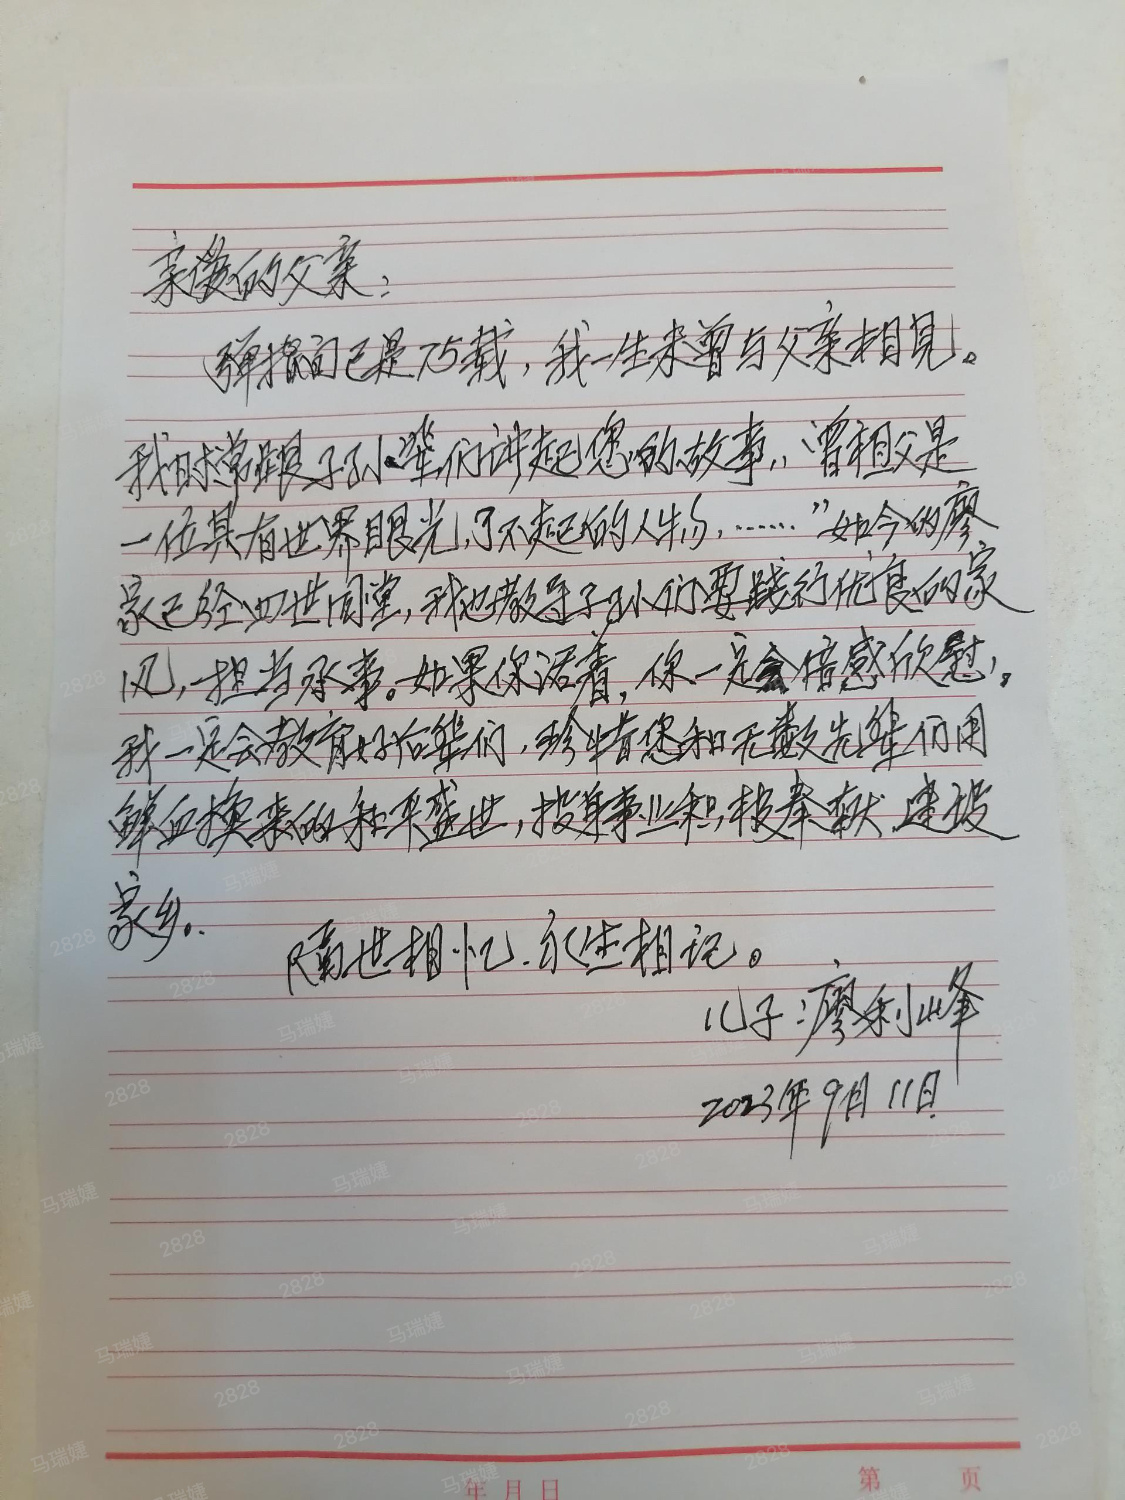 亲爱的父亲：
弹指间已是75载，我一生未曾与父亲相见。
我时常跟子孙小辈们讲起您的故事，“曾祖父是
一位具有世界眼光，了不起的人物，……”如今的廖
家已经四世同堂，我也教导子孙们要践行优良的家
风，担当承事。如果你活着，你一定会倍感欣慰，
我一定会教育好后辈们，珍惜您和无数先辈们用
鲜血换来的和平盛世，投身事业积极奉献 建设
家乡。
隔世相忆.永生相记。
儿子：廖利峰
2023年9月11日
年 月 日
第 页
马瑞婕
2828